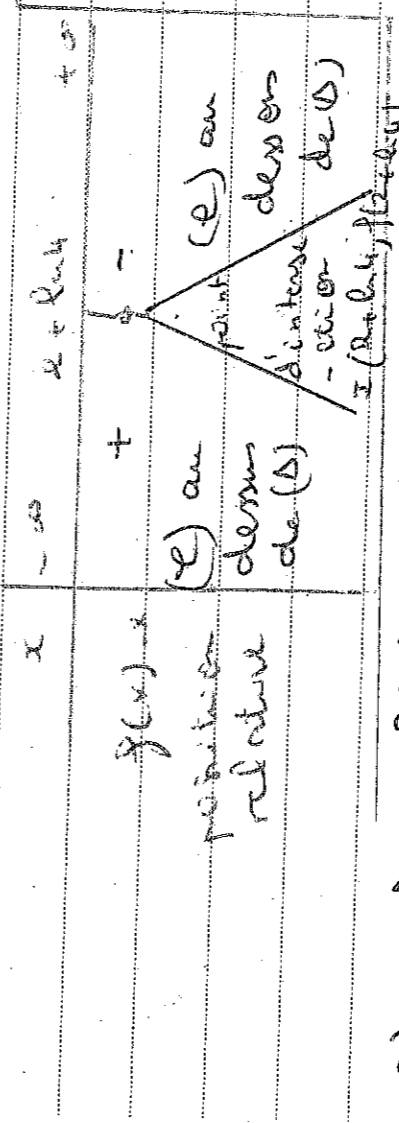 x -∞ 2+ln4 +∞
f(x)-x + 0 -
position relative
(C) au dessus de (Δ)
point d'interse-ction
I(2+ln4, f(2+ln4)
(C) au dessous de (Δ)